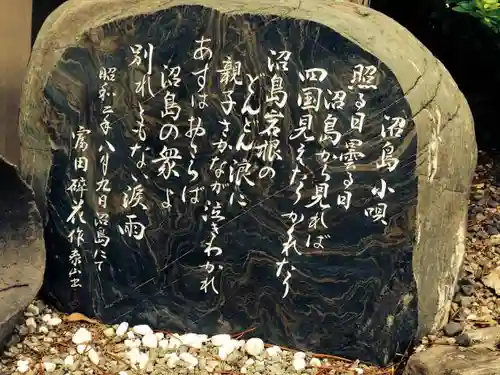 沼島小唄
照る日曇る日
沼島から見れば
四国見えたりかれたり
沼島岩根の
どんどん浪に
親子さかなが泣きわかれ
あすはおさらば
沼島の衆よ
別れともない涙雨
昭和二年八月九日沼島にて
富田砕花作泰山書